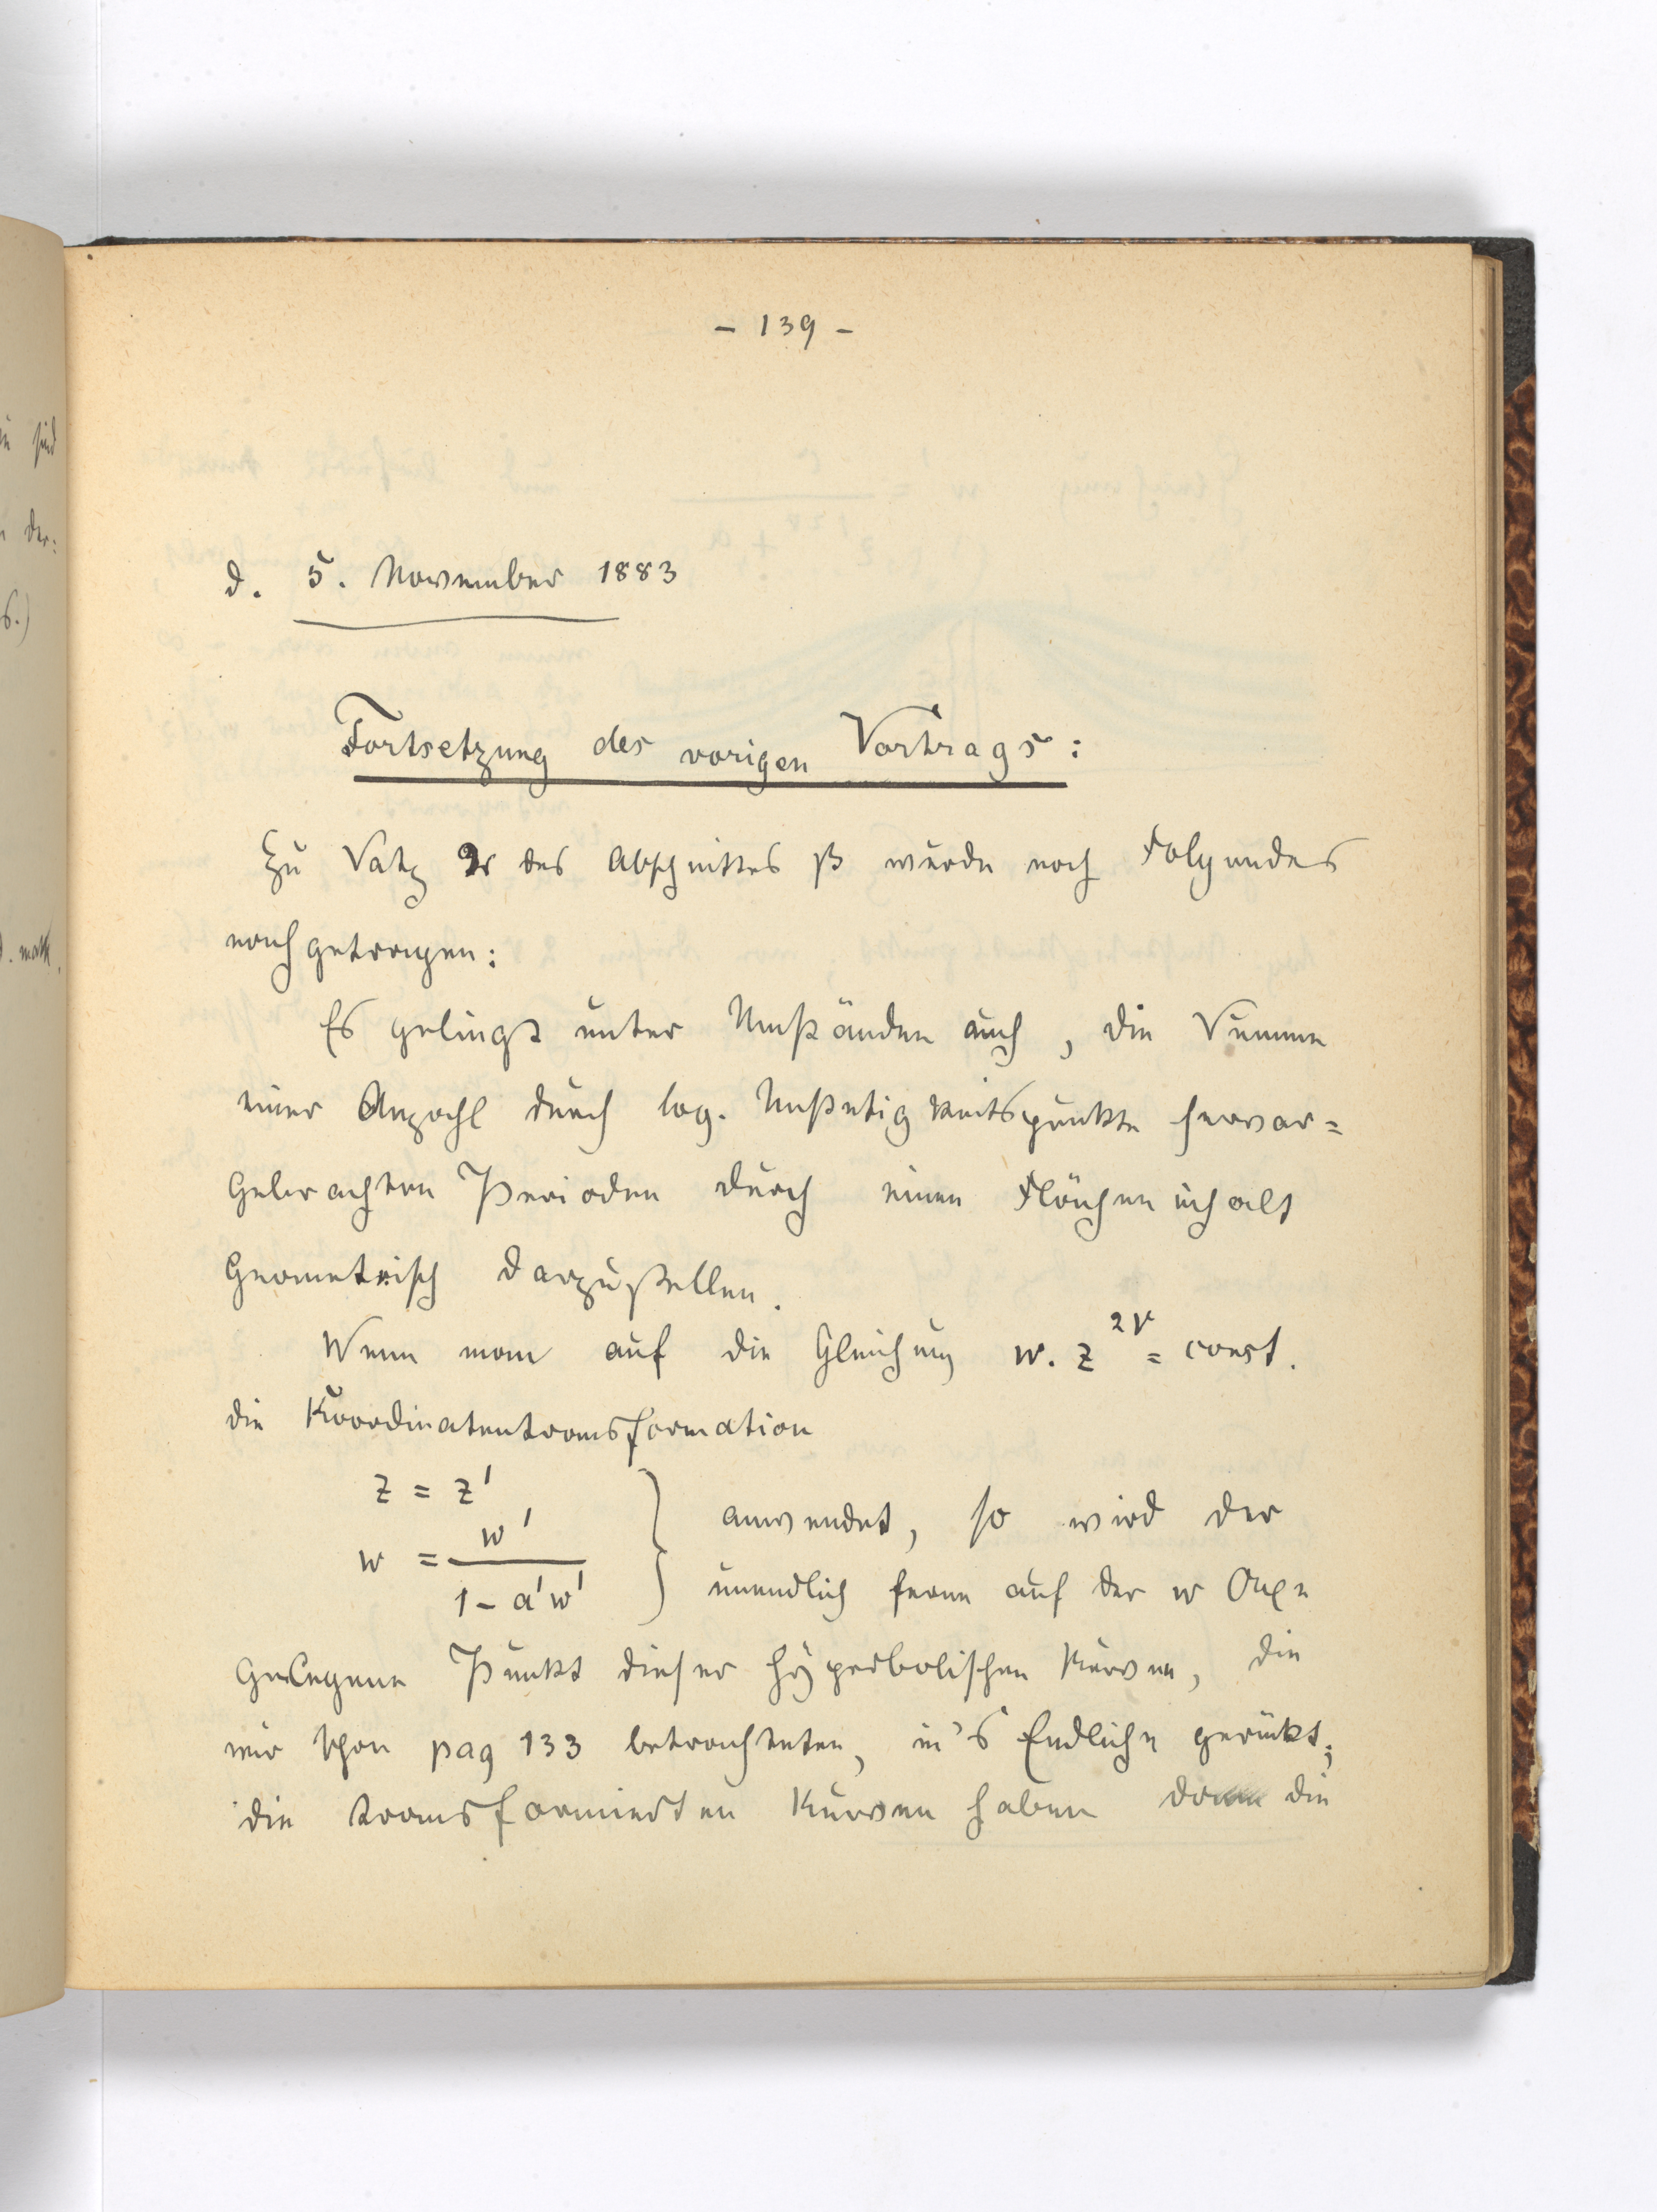 - 139 -
d. 5. November 1883
Fortsetzung des vorigen Vortrags:
Zu Satz 2 des Abschnittes β wurde noch Folgendes
nachgetragen:
Es gelingt unter Umständen auch, die Summe
einer Anzahl durch log. Unstetigkeitspunkte hervor=
gebrachten Perioden durch einen Flächeninhalt
geometrisch darzustellen.
Wenn man auf die Gleichung w. z^{2ν} = const.
die Koordinatentransformation
z = z'
w = w' / (1 - a'w') } anwendet, so wird der
unendlich ferne auf der w Axe
gelegene Punkt dieser hyperbolischen Kurven, die
wir schon pag 133 betrachteten, in's Endliche gerückt;
die transformierten Kurven haben die
sind
der:
6.)
d. math.